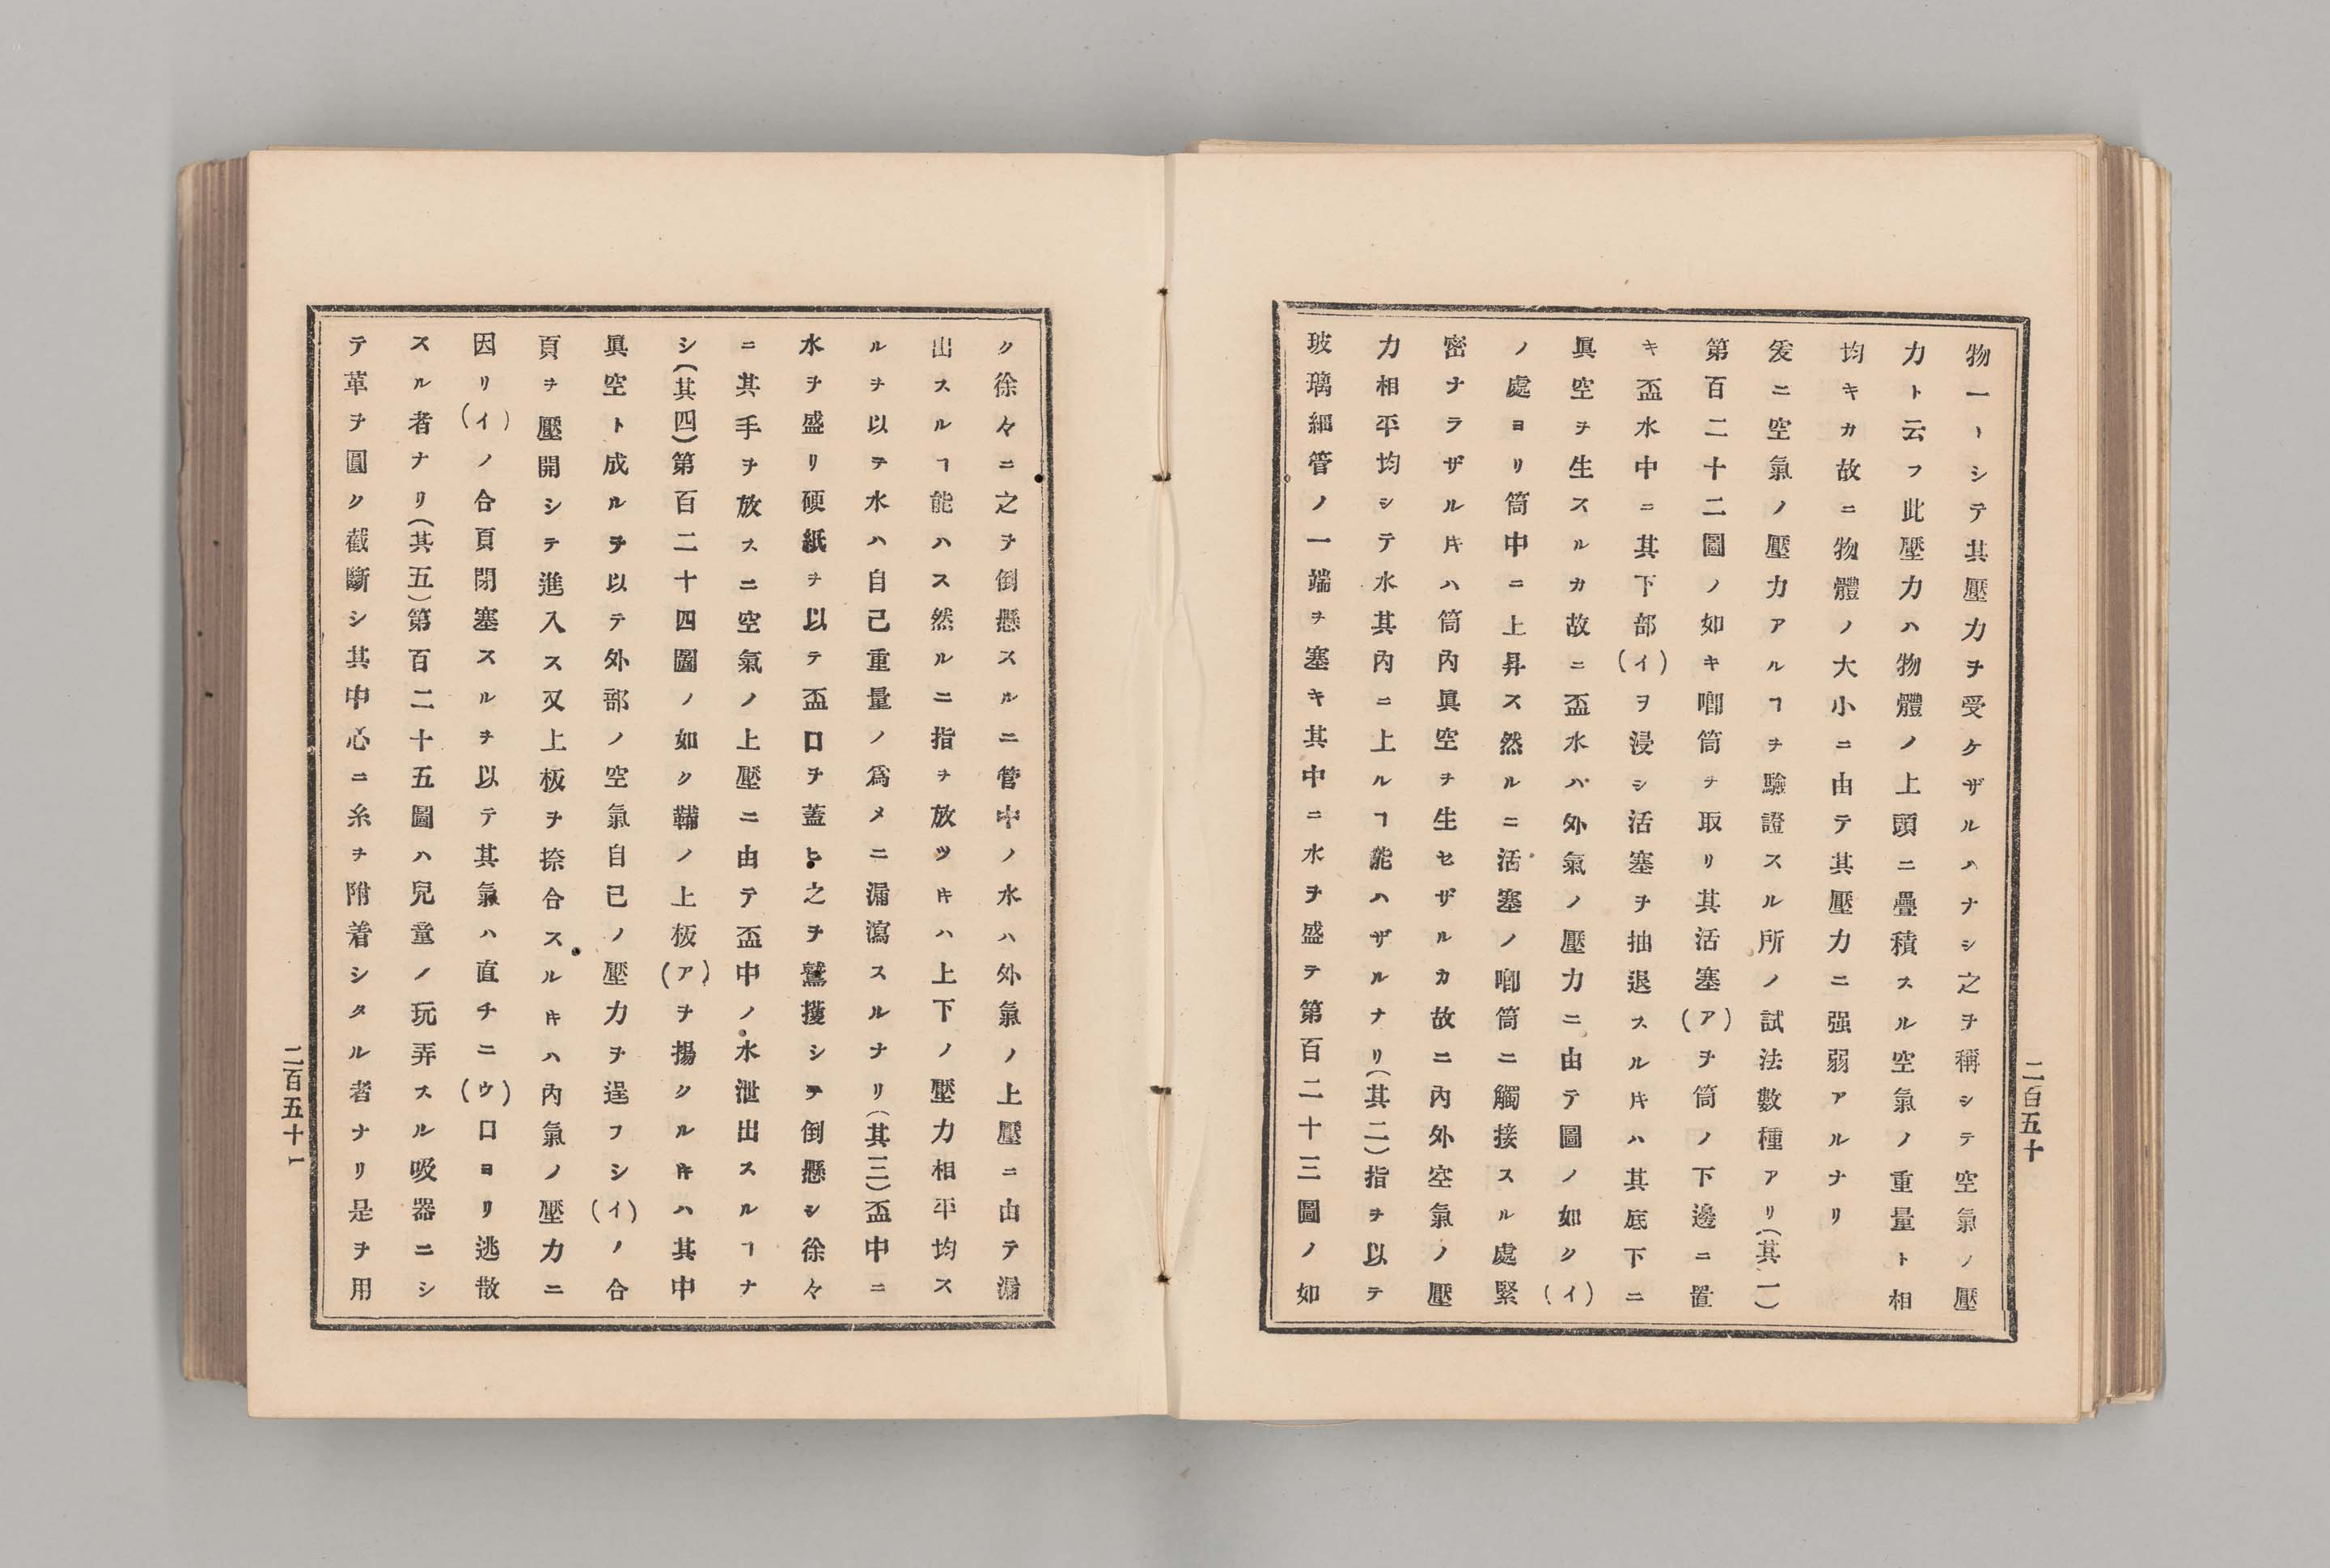 物一トシテ其壓力ヲ受ケザルハナシ之ヲ稱シテ空氣ノ壓
力ト云フ此壓力ハ物體ノ上頭ニ疊積スル空氣ノ重量ト相
均キカ故ニ物體ノ大小ニ由テ其壓力ニ强弱アルナリ
爰ニ空氣ノ壓力アルヿヲ驗證スル所ノ試法數種アリ(其一)
第百二十二圖ノ如キ喞筒ヲ取リ其活塞(ア)ヲ筒ノ下邊ニ置
キ盃水中ニ其下部(イ)ヲ浸シ活塞ヲ抽退スル𪜈ハ其底下ニ
眞空ヲ生スルカ故ニ盃水ハ外氣ノ壓力ニ由テ圖ノ如ク(イ)
ノ處ヨリ筒中ニ上昇ス然ルニ活塞ノ喞筒ニ觸接スル處緊
密ナラザル𪜈ハ筒內眞空ヲ生セザルカ故ニ內外空氣ノ壓
力相平均シテ水其內ニ上ルヿ能ハザルナリ(其二)指ヲ以テ
玻璃細管ノ一端ヲ塞キ其中ニ水ヲ盛テ第百二十三圖ノ如
二百五十
ク徐々ニ之ヲ倒懸スルニ管中ノ水ハ外氣ノ上壓ニ由テ漏
出スルヿ能ハス然ルニ指ヲ放ツ𪜈ハ上下ノ壓力相平均ス
ルヲ以テ水ハ自己重量ノ爲メニ漏瀉スルナリ(其三)盃中ニ
水ヲ盛リ硬紙ヲ以テ盃口ヲ蓋ヒ之ヲ鷲攫シテ倒懸シ徐々
ニ其手ヲ放スニ空氣ノ上壓ニ由テ盃中ノ水泄出スルヿナ
シ(其四)第百二十四圖ノ如ク鞴ノ上板(ア)ヲ揚クル𪜈ハ其中
眞空ト成ルヲ以テ外部ノ空氣自己ノ壓力ヲ逞フシ(イ)ノ合
頁ヲ壓開シテ進入ス又上板ヲ捺合スル𪜈ハ內氣ノ壓力ニ
因リ(イ)ノ合頁閉塞スルヲ以テ其氣ハ直チニ(ウ)口ヨリ逃散
スル者ナリ(其五)第百二十五圖ハ兒童ノ玩弄スル吸器ニシ
テ革ヲ圓ク截斷シ其中心ニ糸ヲ附着シタル者ナリ是ヲ用
二百五十一